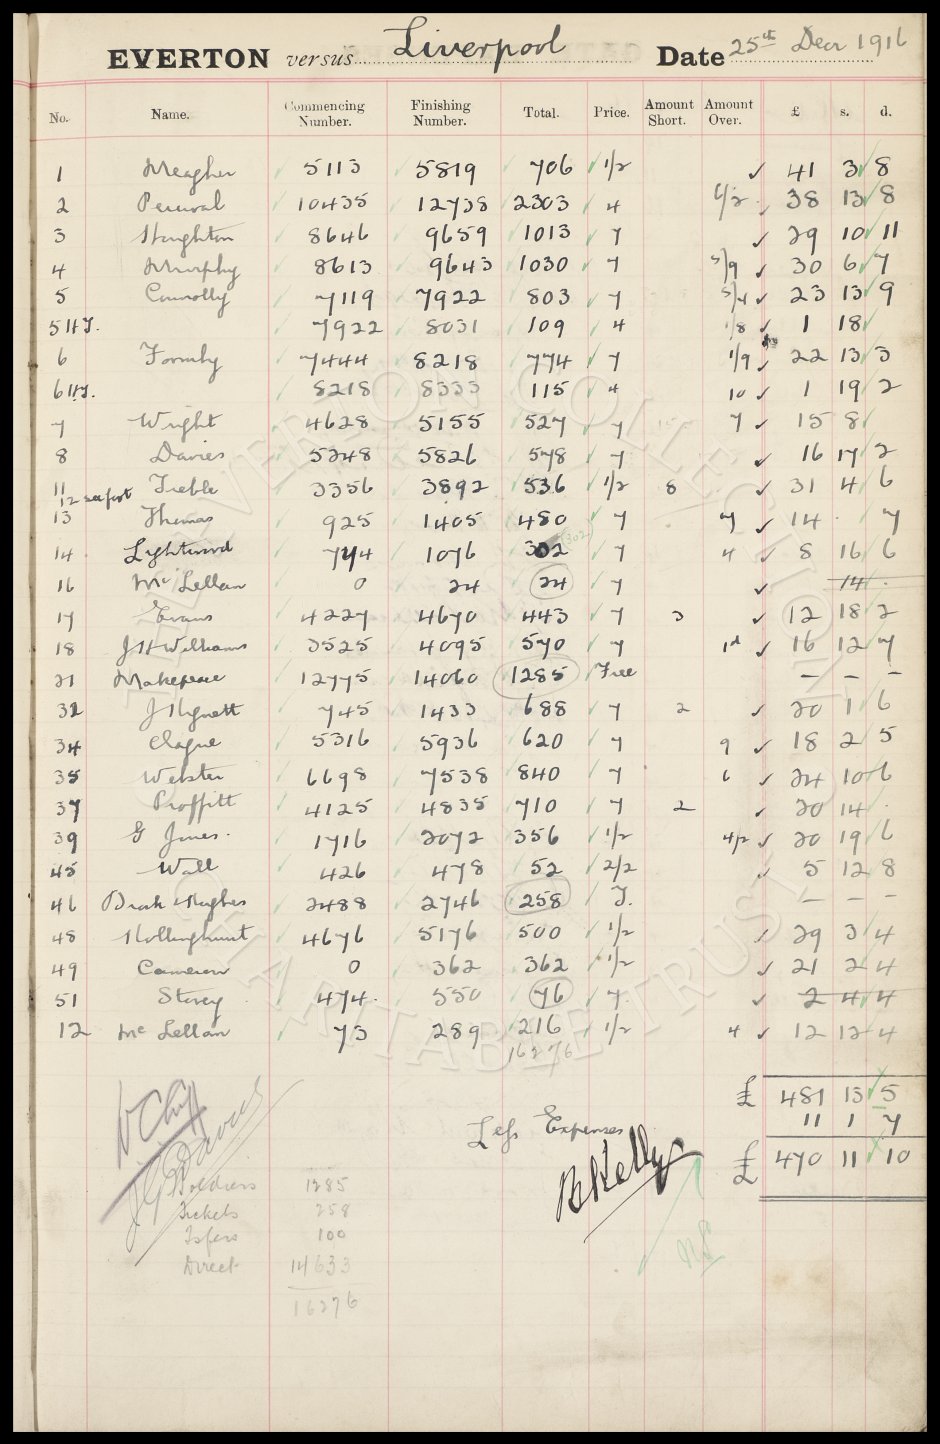 EVERTON versus Liverpool Date 25th Decr 1916
No. Name. Commencing Number. Finishing Number. Total. Price. Amount Short. Amount Over. £ s. d.
1 Meagher 5113 5819 706 1/2 41 3 8
2 Percival 10435 12738 2303 4 6/2 38 13 8
3 Houghton 8646 9659 1013 7 29 10 11
4 Murphy 8613 9643 1030 7 5/9 30 6 7
5 Connolly 7119 7922 803 7 5/4 23 13 9
5 HT. 7922 8031 109 4 1/8 1 18
6 Formby 7444 8218 774 7 1/9 22 13 3
6 HT. 8218 8333 115 4 10 1 19 2
7 Wright 4628 5155 527 7 7 15 8
8 Davies 5248 5826 578 7 16 17 2
11 Treble 3356 3892 536 1/2 8 31 4 6
12 see foot
13 Thomas 925 1405 480 7 7 14 7
14 Lightwood 774 1076 302 (302) 7 4 8 16 6
16 McLellan 0 24 24 7 14
17 Evans 4227 4670 443 7 3 12 18 2
18 J H Williams 3525 4095 570 7 1d 16 12 7
21 Makepeace 12775 14060 1285 Free – – –
32 J Rignett 745 1433 688 7 2 20 1 6
34 Clague 5316 5936 620 7 9 18 2 5
35 Webster 6698 7538 840 7 6 24 10 6
37 Proffitt 4125 4835 710 7 2 20 14
39 G Jones. 1716 2072 356 1/2 4/2 20 19 6
45 Wall 426 478 52 2/2 5 12 8
46 Dick Hughes 2488 2746 258 T. – – –
48 Hollinghurst 4676 5176 500 1/2 29 3 4
49 Cameron 0 362 362 1/2 21 2 4
51 Storey 474 550 76 7 2 4 4
12 McLellan 73 289 216 1/2 4 12 12 4
16276
£ 481 13 5
Less Expenses 11 1 7
£ 470 11 10
W C Cuff
J G Davies
B Kelly
Soldiers 1285
Tickets 258
Tsfers 100
Direct 14633
16276
EVERTON COLLECTION CHARITABLE TRUST